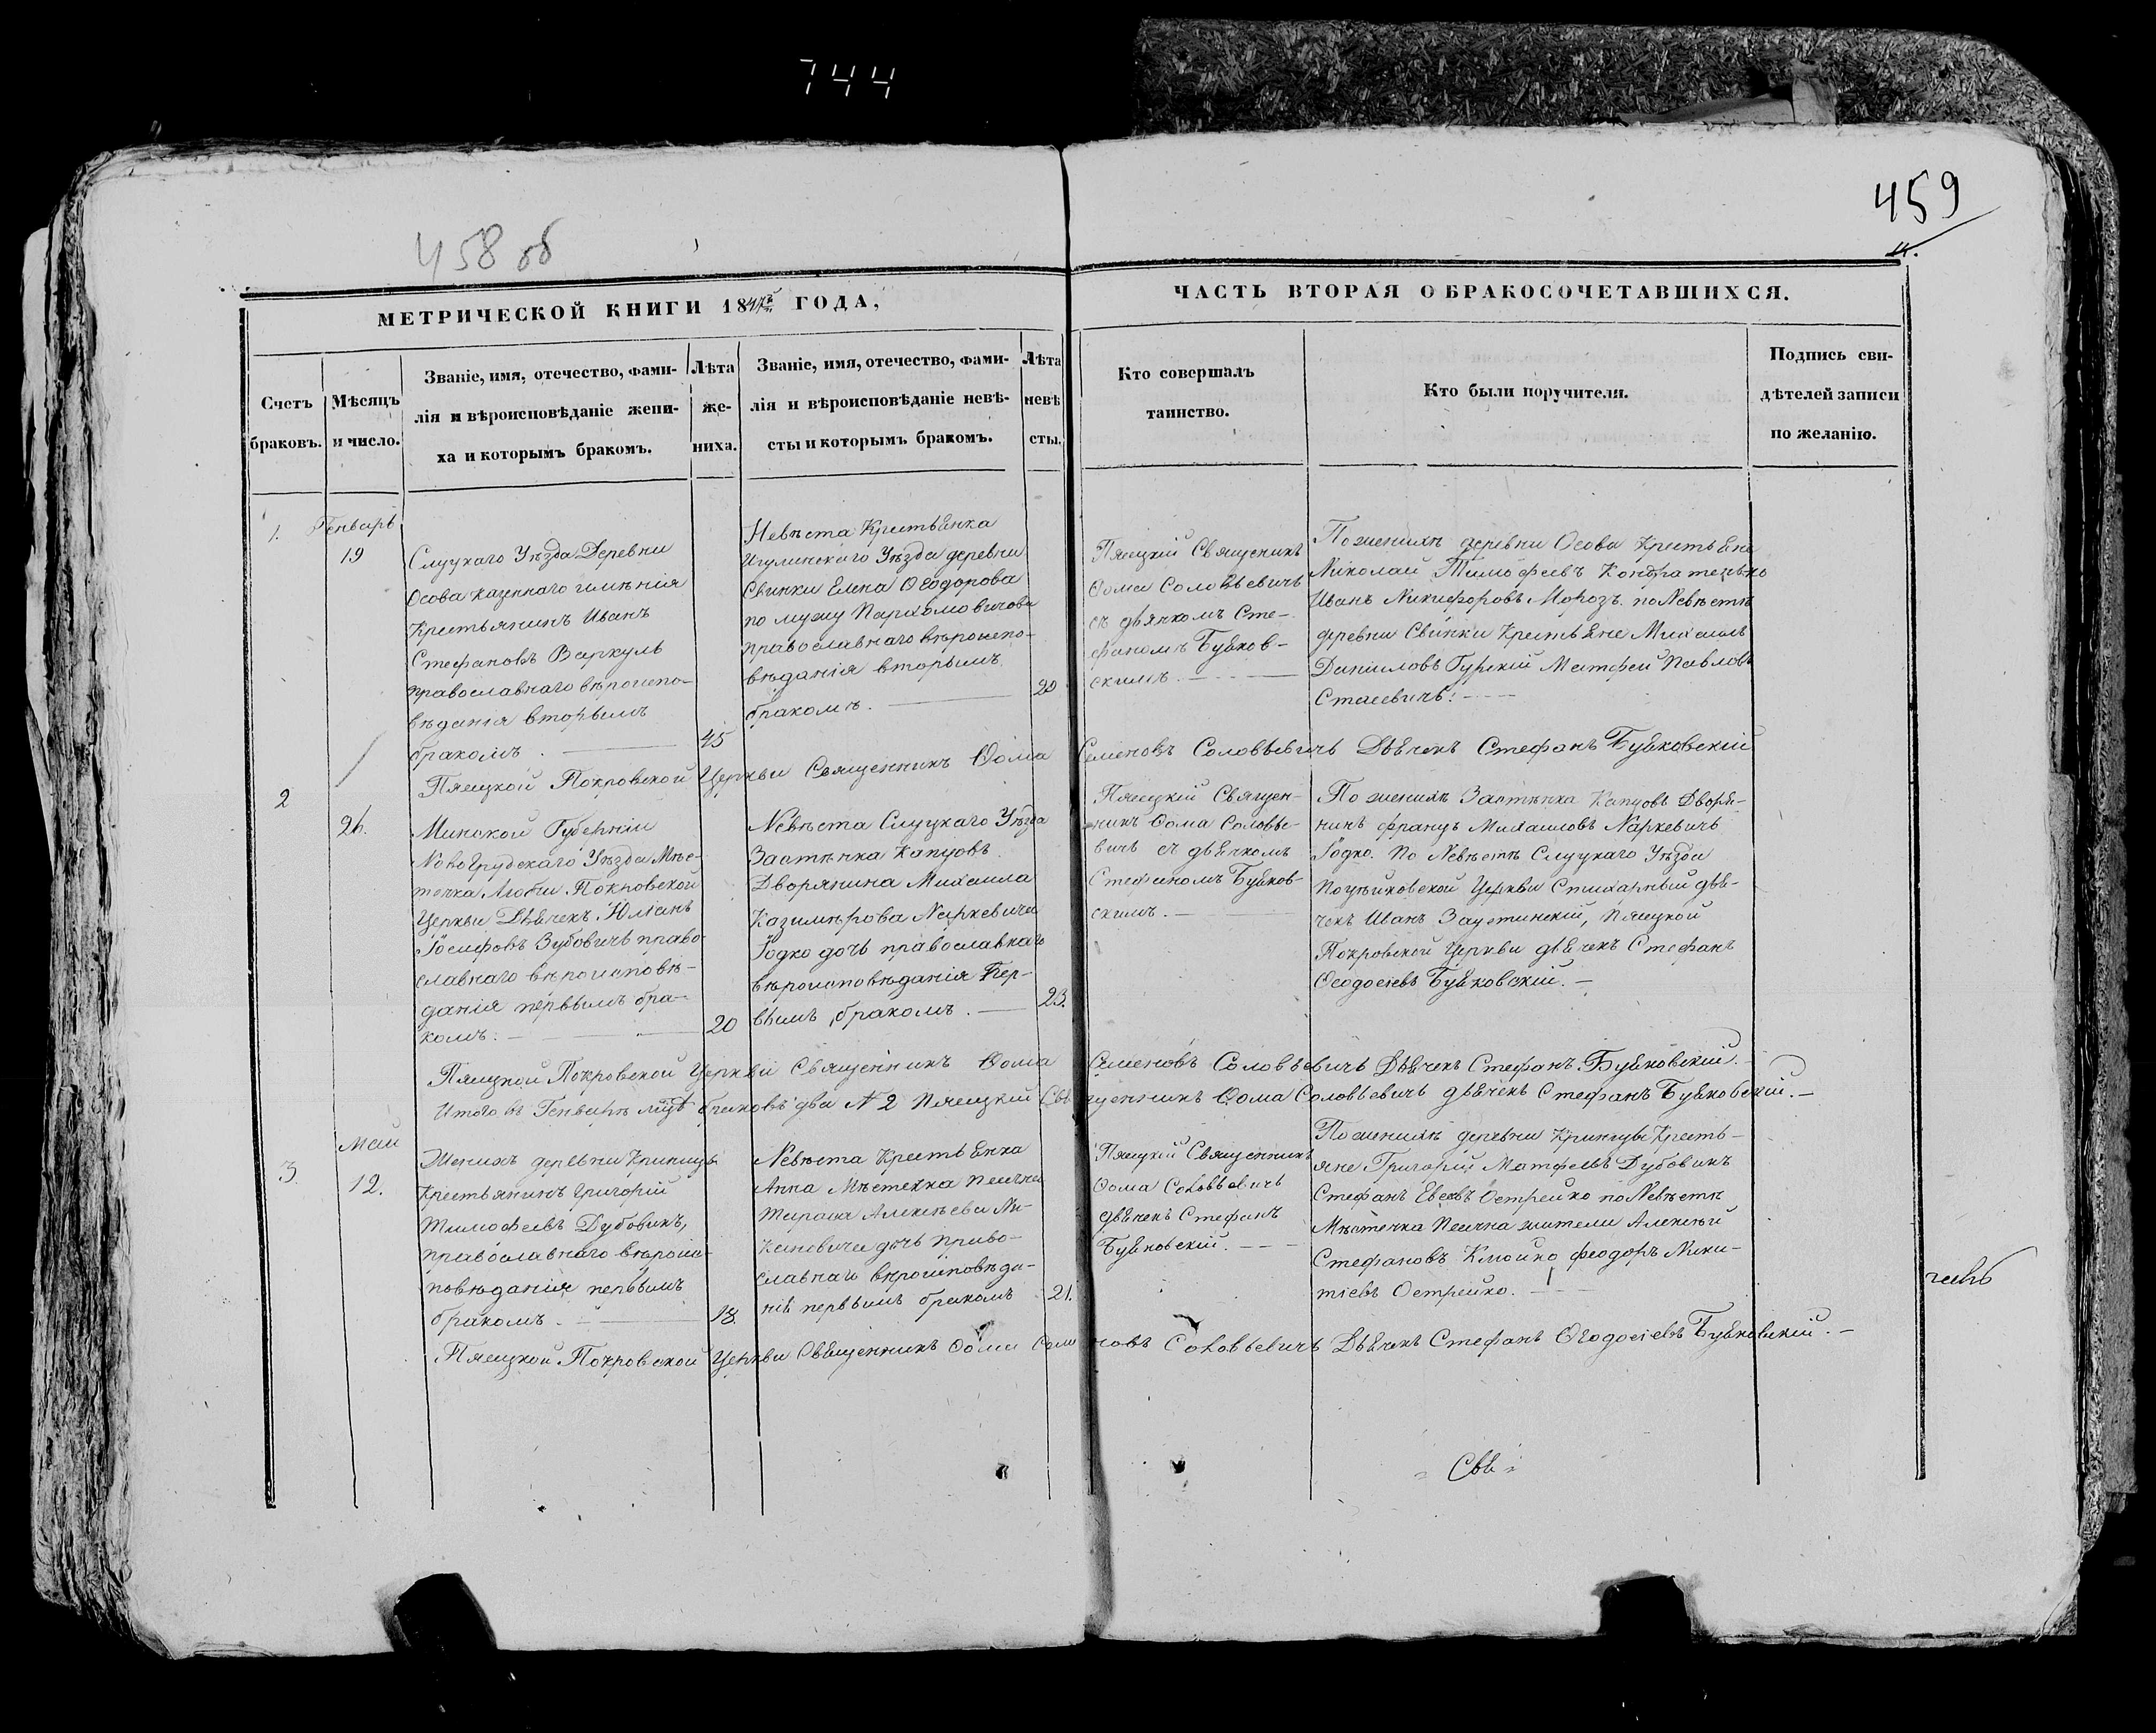 744
459
458 об
11.
МЕТРИЧЕСКОЙ КНИГИ 1847 ГОДА,
ЧАСТЬ ВТОРАЯ О БРАКОСОЧЕТАВШИХСЯ.
Счетъ
браковъ.
Мѣсяцъ
и число.
Званіе, имя, отечество, фами-
лія и вѣроисповѣданіе жени-
ха и которымъ бракомъ.
Лѣта
же-
ниха.
Званіе, имя, отечество, фами-
лія и вѣроисповѣданіе невѣ-
сты и которымъ бракомъ.
Лѣта
невѣ
сты.
Кто совершалъ
таинство.
Кто были поручители.
Подпись сви-
дѣтелей записи
по желанію.
1.
Генварь
19
Слуцкаго Уѣзда Деревни
Осова казеннаго имѣнія
Крестьянинъ Иванъ
Стефановъ Варкуль
православнаго вѣроиспо-
вѣданія вторымъ
бракомъ.
45
Невѣста Крестьянка
Игуменскаго Уѣзда деревни
Свинки Елена Ѳеодорова
по мужу Пархомовичова
православнаго вѣроиспо-
вѣданія вторымъ
бракомъ.
20
Пясецкій Священикъ
Ѳома Соловьевичъ
съ дьячкомъ Сте-
фаномъ Буяков-
скимъ.
По женихѣ деревни Осова Крестьяне
Николай Тимофеевъ Кондратенько
Иванъ Никифоровъ Морозъ. по Невѣстѣ
деревни Свинки Крестьяне Михаилъ
Данииловъ Гурскій Матфей Павловъ
Стасевичъ.
Пясецкой Покровской Церкви Священникъ Ѳома Семеновъ Соловьевичъ Дьячекъ Стефанъ Буяковскій
2
26.
Минской Губерніи
Новогрудскаго Уѣзда Мѣс-
течка Покровской
Церкви Дьячекъ Юліанъ
Іосифовъ Зубовичъ право-
славнаго вѣроисповѣ-
данія первымъ бра-
комъ.
20
Невѣста Слуцкаго Уѣзда
Застѣнка Капуовъ
Дворянина Михаила
Казимѣрова Наркевича
Іодко дочь православнаго
вѣроисповѣданія Пер-
вымъ бракомъ.
23.
Пясецкій Священ-
никъ Ѳома Соловье-
вичъ съ дьячкомъ
Стефаномъ Буяков-
скимъ.
По женихѣ Застѣнка Капуовъ Дворя-
нинъ францъ Михаиловъ Наркевичъ
Іодко. По Невѣстѣ Слуцкаго Уѣзда
Церкви Стихарный дья-
чекъ Иванъ Заустинскій, Пясецкой
Покровской Церкви дьячекъ Стефанъ
Ѳеодосіевъ Буяковскій.
Пясецкой Покровской Церкви Священникъ Ѳома Семеновъ Соловьевичъ Дьячекъ Стефанъ Буяковскій.
Итого въ Генварѣ мѣцѣ браковъ два N 2 Пясецкій Священникъ Ѳома Соловьевичъ дьячекъ Стефанъ Буяковскій.
3.
Май
12.
Женихъ деревни Криницы
Крестьянинъ Григорій
Тимофеевъ Дубовикъ,
православнаго вѣроис-
повѣданія первымъ
бракомъ.
18.
Невѣста Крестьянка
Анна Мѣстечка Песечна
Тараса Алексѣева Ля-
кановича дочь право-
славнаго вѣроисповѣда-
нія первымъ бракомъ
21.
Пясецкій Священникъ
Ѳома Соловьевичъ
дьячекъ Стефанъ
Буяковскій.
По женихѣ деревни Криницы Кресть-
яне Григорій Матфеевъ Дубовикъ
Стефанъ Острейко по Невѣстѣ
Мѣстечка Песечна жители Алексѣй
Стефановъ Феодоръ Ники-
тіевъ Острейко.
Пясецкой Покровской Церкви Священникъ Ѳома Семеновъ Соловьевичъ Дьячекъ Стефанъ Ѳеодосіевъ Буяковскій.
Свя